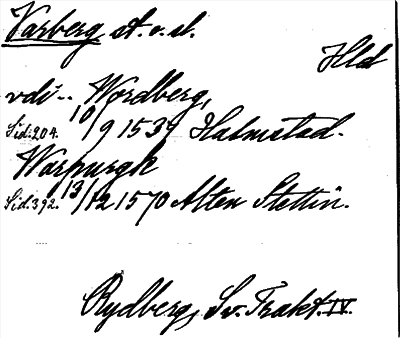 Varberg st. o. sl.
Hld
vdi... Wordberg,
Sid. 204. 10/9 1534 Halmstad.
Warpurgk
Sid. 392. 13/12 1570 Alten Stettin.
Rydberg, Sv. Trakt. IV.